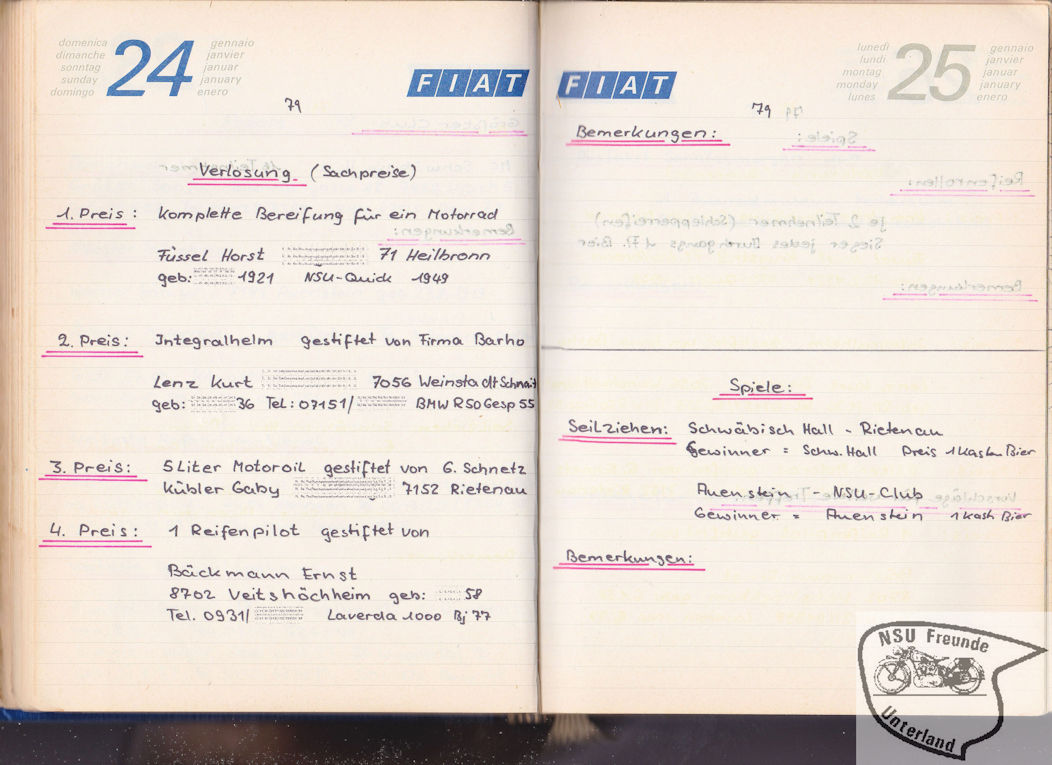 domenica
dimanche
sonntag
sunday
domingo
24
gennaio
janvier
januar
january
enero
FIAT
79
Verlosung (Sachpreise)
1. Preis: Komplette Bereifung für ein Motorrad
Füssel Horst 71 Heilbronn
geb: 1921 NSU-Quick 1949
2. Preis: Integralhelm gestiftet von Firma Barho
Lenz Kurt 7056 Weinstadt Schnait
geb: 36 Tel: 07151/ BMW R50 Gesp 55
3. Preis: 5 Liter Motoroil gestiftet von G. Schnetz
Kübler Gaby 7152 Rietenau
4. Preis: 1 Reifenpilot gestiftet von
Bäckmann Ernst
8702 Veitshöchheim geb: 58
Tel. 0931/ Laverda 1000 Bj 77
FIAT
lunedì
lundi
montag
monday
lunes
25
gennaio
janvier
januar
january
enero
79
Bemerkungen:
Spiele:
Seilziehen: Schwäbisch Hall - Rietenau
Gewinner = Schw. Hall Preis 1 Kasten Bier
Auenstein - NSU-Club
Gewinner = Auenstein 1 Kast Bier
Bemerkungen:
NSU Freunde
Unterland